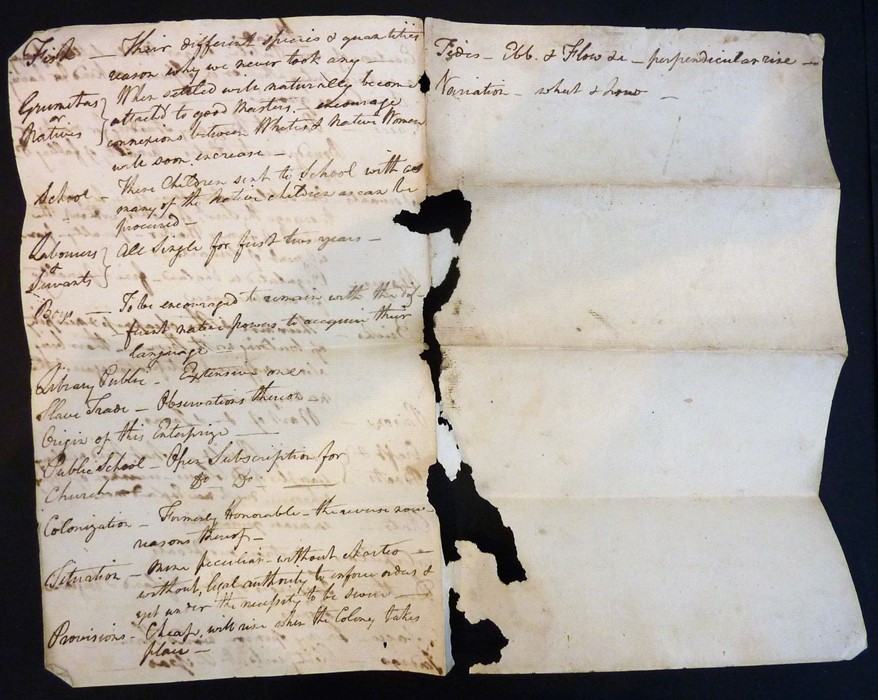 Fish — Their different species & quantities
reason why we never took any —
Grumetas When settled will naturally become
or attach'd to good Masters. — encourage
Natives connexions between Whites & Native Women
will soon increase —
School — These Children sent to School with as
many of the Native children as can be
procured —
Labourers All Single for first two years —
&
Servants
Boys — To be encouraged to remain with the dif-
ferent native powers to acquire their
language
Library Public — Extensive one
Slave Trade — Observations thereon
Origin of this Enterprize —
Public School — Open Subscription for
Church — Do Do —
Colonization — Formerly Honorable — the reverse now
reasons thereof —
Situation — mine peculiar — without charter —
without legal authority to enforce orders &
yet under the necessity to be severe —
Provisions — Cheap, will rise when the Colony takes
place —
Tydes — Ebb & Flow &c — perpendicular rise —
Variation — what & how —